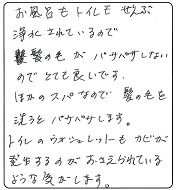 お風呂もトイレも ぜんぶ
浄水されているので
髪の毛が パサパサしない
のでとても良いです。
ほかのスパなので 髪の毛を
洗うと パサパサします。
トイレのウォシュレットも カビが
発生するのが おさえられている
ような気がします。